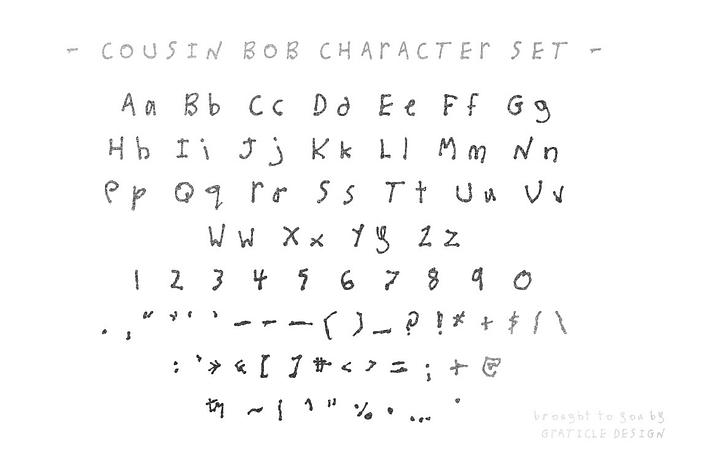 - COUSIN BOB CHARACTER SET -
A a B b C c D d E e F f G g
H h I i J j K k L l M m N n
P p Q q R r S s T t U u V v
W w X x Y y Z z
1 2 3 4 5 6 7 8 9 0
. , " " ' ' — - — ( ) _ ? ! * + $ / \
: ' » « [ ] # < > = ; + @
™ ~ | ^ " % • … ·
brought to you by
GRATICLE DESIGN